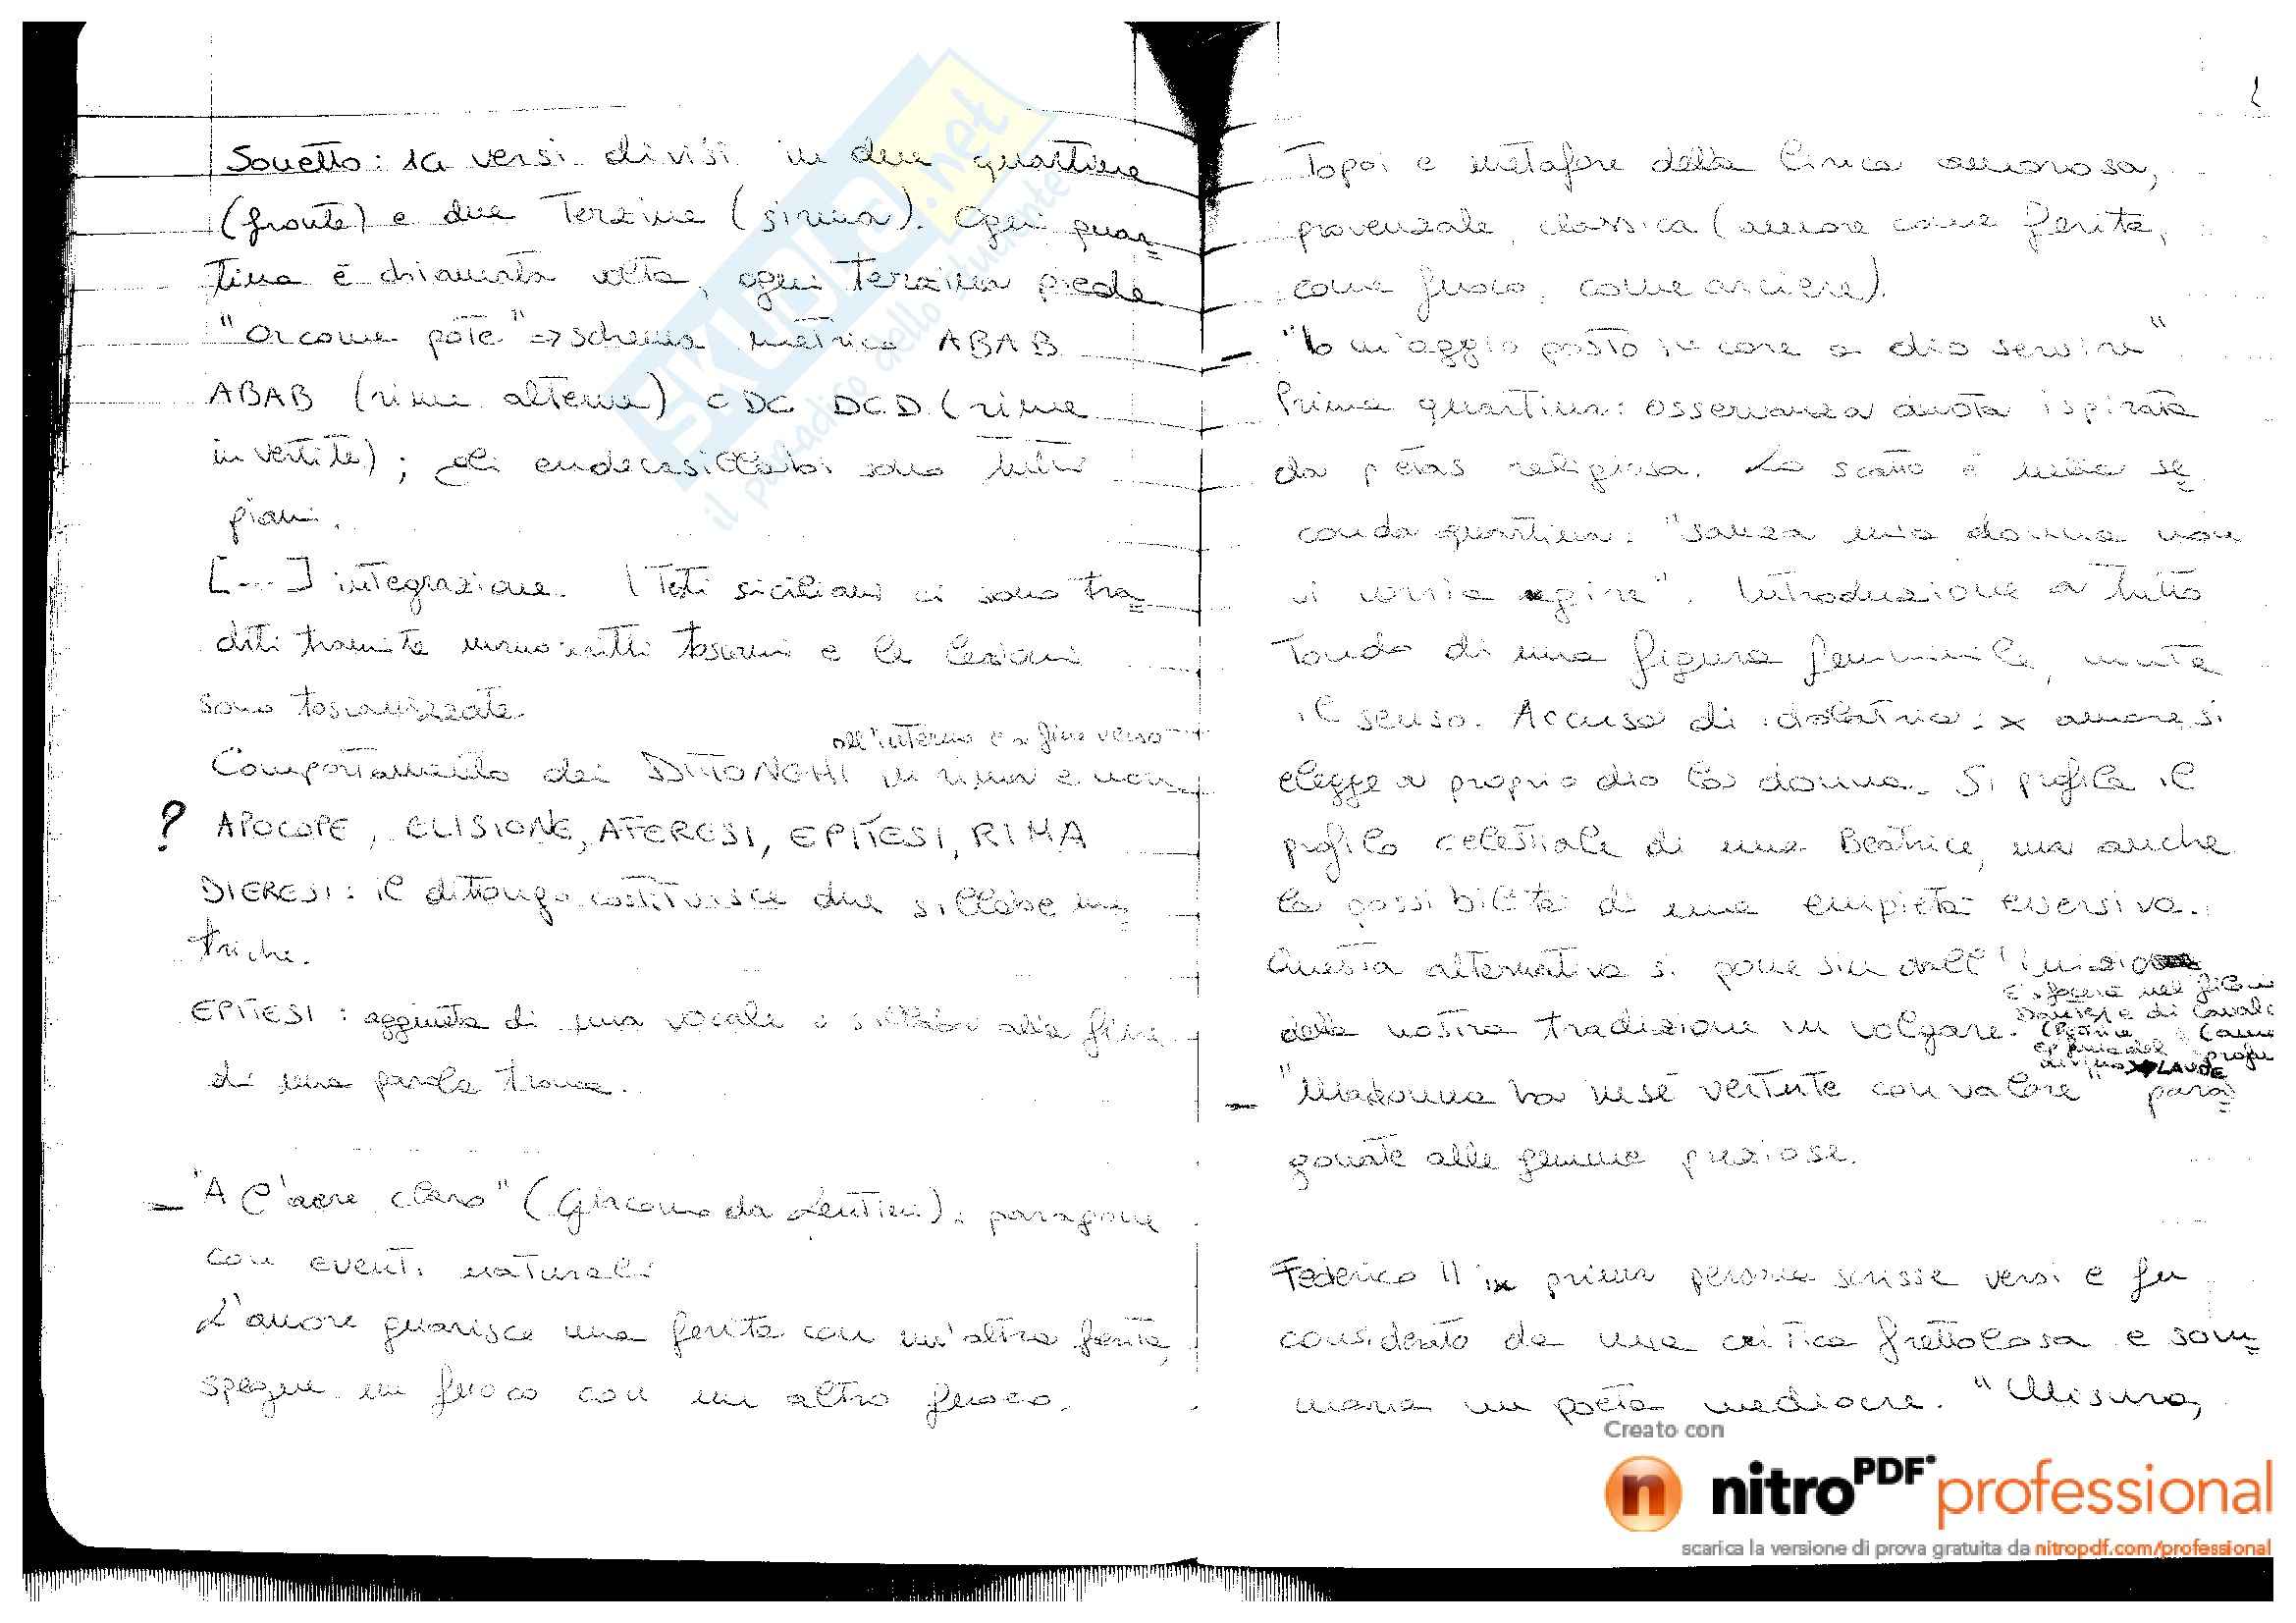 Sonetto: 14 versi divisi in due quartine
(fronte) e due Terzine (sirma). Ogni quar=
tina è chiamata volta, ogni terzina piede
"Or come pote" => schema metrico ABAB
ABAB (rime alterne) CDC DCD (rime
invertite); gli endecasillabi sono tutti
piani.
[...] integrazione. I Testi siciliani ci sono tra=
diti tramite manoscritti toscani e le lezioni
sono toscanizzate
all'interno e a fine verso
Comportamento dei DITTONGHI in rima e non
? APOCOPE, ELISIONE, AFERESI, EPITESI, RIMA
DIERESI: il dittongo costituisce due sillabe me=
triche.
EPITESI: aggiunta di una vocale o sillaba alla fine
di una parola tronca.
- "A l'aere claro" (Giacomo da Lentini): paragone
con eventi naturali
L'amore guarisce una ferita con un'altra ferita,
spegne un fuoco con un altro fuoco.
Topoi e metafore della lirica amorosa,
provenzale, classica (amore come ferita,
come fuoco, come arciere).
- "Io m'aggio posto in core a dio servire"
Prima quartina: osservanza devota ispirata
da pietas religiosa. Lo scatto è nella se=
conda quartina: "sanza mia donna non
vi vorria gire". Introduzione a tutto
tondo di una figura femminile, muta
il senso. Accusa di idolatria: x amore si
elegge a proprio dio la donna. Si profila il
profilo celestiale di una Beatrice, ma anche
la possibilità di una empietà eversiva.
Questa alternativa si pone sin dall'inizio
della nostra tradizione in volgare.
LAUDE
- "Madonna ha in sé vertute con valore" para=
gonate alle gemme preziose.
Federico II in prima persona scrisse versi e fu
considerato da una critica frettolosa e som=
maria un poeta mediocre. "Misura,
SKUOLA.net
il paradiso dello studente
Creato con
nitroPDF professional
scarica la versione di prova gratuita da nitropdf.com/professional